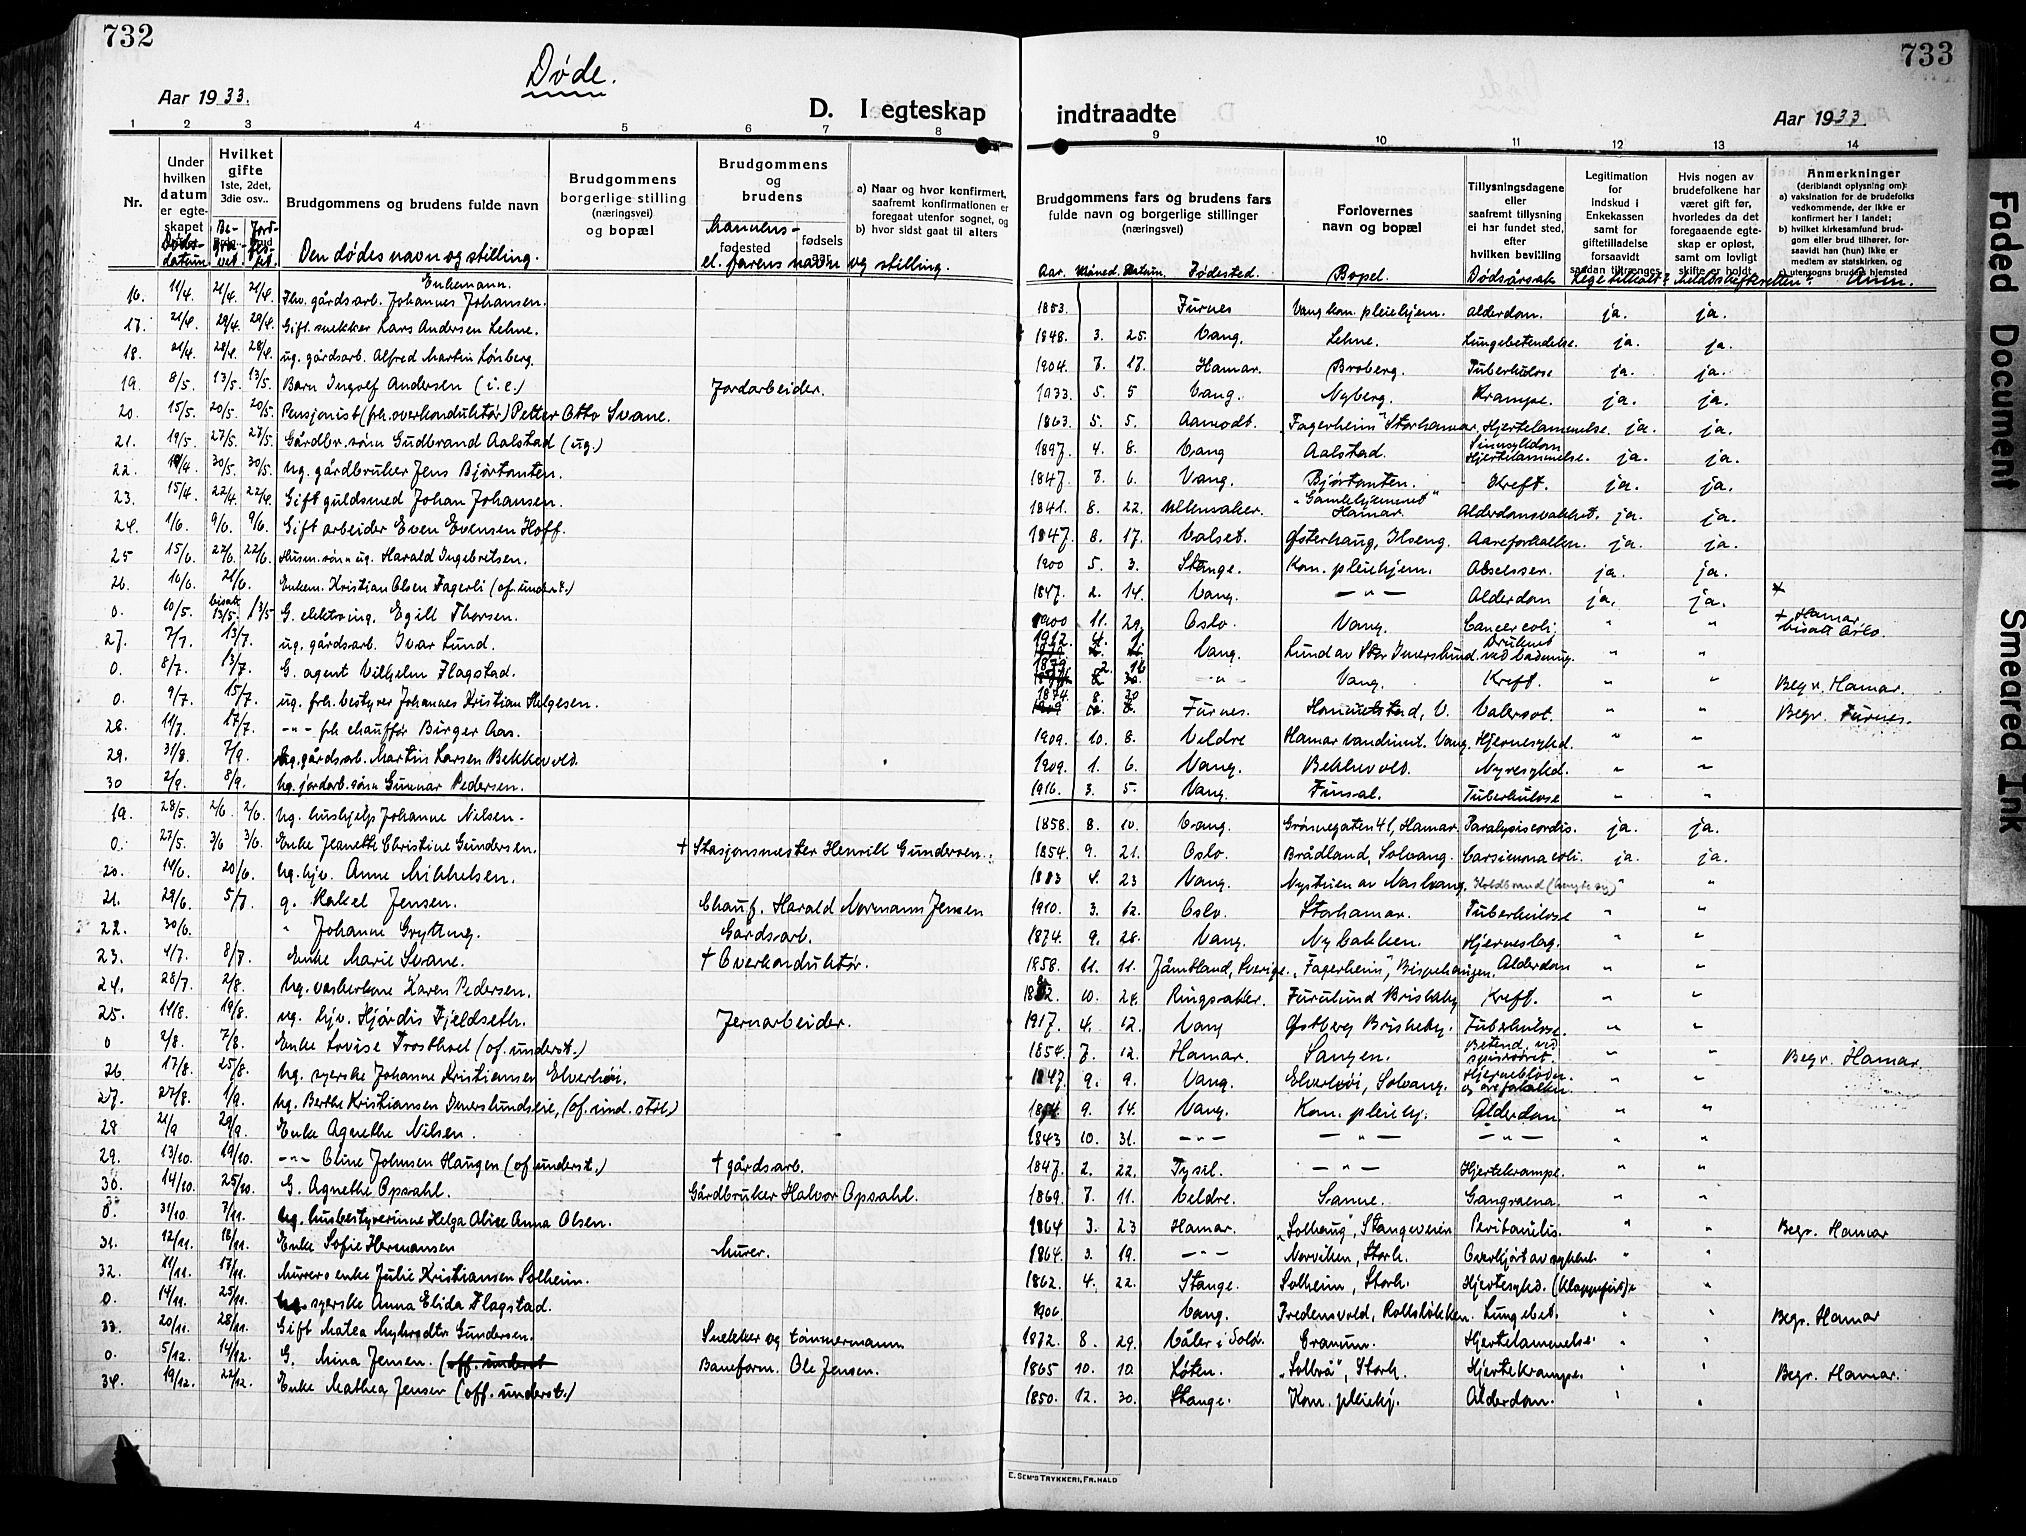 732
Døde.
Aar 1933.
D. I egteskap
1 2 3 4 5 6 7 8
Nr.
Under hvilken datum er egteskapet
Døds-datum
Hvilket gifte 1ste, 2det, 3die osv..
Be-
Jord-
Brudgommens og brudens fulde navn
Den dødes navn og stilling.
Brudgommens borgerlige stilling (næringsvei) og bopæl
Brudgommens og brudens
fødested
fødsels
Mannens- el. farens navn og stilling.
a) Naar og hvor konfirmert, saafremt konfirmationen er foregaat utenfor sognet, og
b) hvor sidst gaat til alters
16. 11/4. 21/4. 21/4. Fhv. gårdsarb. Johannes Johansen. Enkemann.
17. 21/4. 29/4. 29/4. Gift snekker Lars Andersen Lehne.
18. 21/4. 28/4. 28/4. ug. gårdsarb. Alfred Martin Lønberg.
19. 8/5. 13/5. 13/5. Barn Ingolf Andersen (i.e.) Jordarbeider.
20. 15/5. 20/5. 20/5. Pensjonist (frh. overkonduktør) Petter Otto Svane.
21. 19/5. 27/5. 27/5. Gårdbr. sønn Gudbrand Aalstad (ug.)
22. 30/5. 30/5. Ug. gårdbruker Jens Bjørtomten.
23. 15/4. 22/4. 22/4. Gift guldsmed Johan Johansen.
24. 1/6. 9/6. 9/6. Gift arbeider Even Evensen Hoff.
25 15/6. 22/6. 22/6. Husm. sønn ug. Harald Ingebretsen.
26. 16/6. 21/6. Enkem. Kristian Olsen Fagerli (of. underst.)
0. 10/5. bisatt 13/5. 13/5 G. elektroing. Egill Thorsen.
27. 7/7. 13/7. ug. gårdsarb. Ivar Lund.
0. 8/7. 13/7. G. agent Vilhelm Flagstad.
0. 9/7. 15/7. ug. frh. bestyrer Johannes Kristian Helgesen.
28. 11/7. 17/7. -"- frh. chauffør Birger Aas.
29. 31/8. 7/9. Ug. gårdsarb. Martin Larsen Bekkevold.
30 2/9. 8/9. Ug. jordarb. sønn Gunnar Pedersen.
19. 28/5. 2/6. 2/6. Ug. hushjelp Johanne Nilsen.
0. 27/5. 3/6 3/6. Enke Jeanette Christine Gundersen. + Stasjonsmester Henrik Gundersen.
20. 14/6. 20/6. Ug. hjv. Anne Mikkelsen.
21. 29/6. 5/7. g. Rakel Jensen. Chauf. Harald Normann Jensen
22. 30/6. " Johanne Grytting. Gårdsarb.
23. 4/7. 8/7. Enke Marie Svane. + Overkonduktør.
24. 28/7. 2/8. Ug. vaskerkone Karen Pedersen.
25. 14/8. 19/8. ug. hjv. Hjørdis Fjeldseth. Jernarbeider.
0 2/8. 7/8. Enke Lovise Frosthoel (of. underst.)
26 17/8. 25/8. Ug. syerske Johanne Kristiansen Elverhøi.
27. 27/8. 1/9. Ug. Berthe Kristiansen Imerslundseie, (of. und. støt.)
28 21/9 29/9. Enke Agnethe Nilsen.
29. 13/10. 19/10. -"- Oline Johnsen Haugen (of. underst.) + gårdsarb.
30. 14/10. 25/10. G. Agnethe Opsahl. Gårdbruker Halvor Opsahl.
0. 31/10 7/11. Ug. husbestyrerinne Helga Alise Anna Olsen.
31. 12/11. 18/11. Enke Sofie Hermansen Murer.
32. 11/11. 17/11. Murers enke Julie Kristiansen Solheim.
0. 14/11. 25/11. Ug. syerske Anna Elida Flagstad.
33. 20/11. 28/11. Gift Matea Myhrodtr Gundersen. Snekker og tømmermann
0. 5/12. 14/12. G. Mina Jensen. (off. underst Baneform. Ole Jensen.
34. 19/12. 22/12. Enke Mathea Jensen (off. underst.)
733
indtraadte
Aar 1933.
9 10 11 12 13 14
Brudgommens fars og brudens fars fulde navn og borgerlige stillinger (næringsvei)
Aar. Måned. Datum. Fødested.
Forlovernes navn og bopæl
Bopel.
Tillysningsdagene eller saafremt tillysning ei har fundet sted, efter hvilken bevilling
Dødsårsak
Legitimation for indskud i Enkekassen samt for giftetilladelse forsaavidt saadan tiltrenges
Lege tilkalt?
Hvis nogen av brudefolkene har været gift før, hvorledes da det foregaaende egteskap er opløst, samt om lovligt skifte er holdt
Meldt skifteretten?
Anmerkninger
(deriblandt oplysning om):
a) vaksination for de brudefolks vedkommende, der ikke er konfirmert her i landet;
b) hvilket kirkesamfund brudgom eller brud tilhører, forsaavidt han (hun) ikke er medlem av statskirken, og
c) utensogns bruds hjemsted
Anm.
1853. Furnes Vang kom. pleiehjem. Alderdom. ja. ja.
1848. 3. 25. Vang. Lehne. Lungebetendelse. ja. ja.
1904. 7. 17. Hamar. Broberg. Tuberkulose ja. ja.
1933. 5. 5 Vang. Nyberg. Krampe. ja. ja.
1863. 5. 5. Aamodt. "Fagerheim" Storhamar. Hjertelammelse. ja. ja.
1897. 4. 8. Vang Aalstad. Sinnsykdom Hjertelammelse. ja. ja.
1847. 7. 6. Vang. Bjørtomten. Kreft. ja. ja.
1841. 8. 22. Ullensaker. "Gamlehjemmet" Hamar. Alderdomssvakhet. ja. ja.
1847. 8. 17. Valset. Østerhaug, Ilseng. Aareforkalkn. ja. ja.
1900 5. 3. Stange. Kom. pleiehjem. Abselsser. ja. ja.
1847. 2. 14. Vang. -"- Alderdom ja. ja.
1900 11. 29. Oslo. Vang. Cancer coli. " " + Hamar, bisatt Oslo.
1912. 4. 1. Vang. Lund av Stor Imerslund. Druknet ved badning. " "
1879. 2. 16 -"- Vang. Kreft. " " Begr. Hamar.
1874. 8. 20 Furnes. Hommelstad, V. Valersot. " " Begr. Furnes.
1909. 10. 8. Veldre Hamar vandinnt. Vang. Hjernesykd. " "
1909. 1. 6. Vang. Bekkevold. Nyresykd. " "
1916. 3. 5. Vang. Finsal. Tuberkulose " "
1858. 8. 10. Vang. Grønnegaten 41, Hamar. Paralysis cordis. ja. ja.
1854. 9. 21. Oslo. Brådland, Solvang. Carsinoma coli. ja. ja.
1883 4. 23 Vang. Nystuen av Naskvang. Koldbrand " "
1910. 3. 12. Oslo. Storhamar. Tuberkulose " "
1874. 9. 28. Vang. Nybakken. Hjerneslag. " "
1858. 11. 11. Jämtland, Sverige. "Fagerheim", Bispehaugen. Alderdom " "
10. 24. Ringsaker. Furulund Briskeby Kreft. " "
1917. 4. 12. Vang Østberg Briskeby. Tuberkulose. " "
1854. 7. 12. Hamar. Sangen. Betend. ved spiserøret. " " Begr. Hamar.
1847. 9. 9. Vang. Elverhøi, Solvang. Hjerneblødn. og åreforkalkn. " "
9. 14. Vang. Kom. pleiehj. Alderdom " "
1843 10. 31. -"- -"- -"- " "
1847. 2. 22. Tysl. -"- Hjertekrampe. " "
1869. 7. 11. Veldre. Sanne. Gangræna. " "
1864 3. 23 Hamar. "Solhaug", Stangeveien Peritonitis. " " Begr. Hamar
1864. 3. 19. -"- Norviken, Storh. Overkjørt av sykkel. " "
1862. 4. 22. Stange. Solheim, Storh. Hjertesykd. (klappefeil) " "
1906 Vang. Fredensvold, Rolksløkken. Lungebet. " " Begr. Hamar
1872. 8. 29. Våler i Solør. Granum. Hjertelammelse. " "
1865 10. 10. Løten. "Solbrå", Storh. Hjertekrampe. " " Begr. Hamar.
1850. 12. 30. Stange. Kom. pleiehj. Alderdom. " "
E. SEM'S TRYKKERI, FR.HALD
Faded Document
Smeared Ink